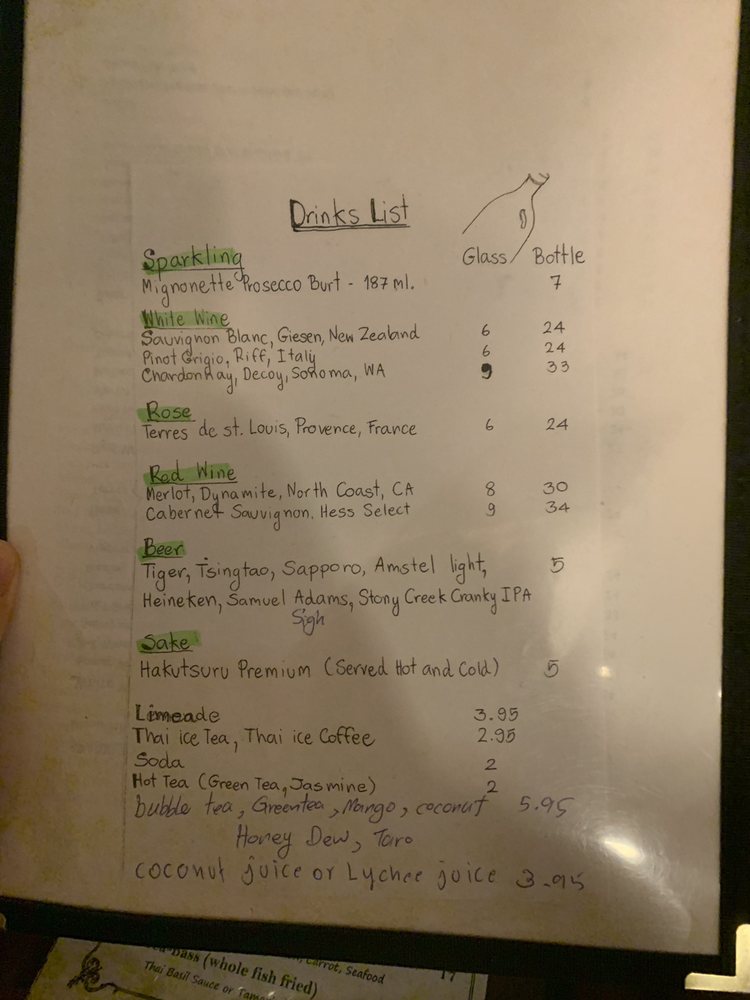 Drinks List
Glass / Bottle
Sparkling
Mignonette Prosecco Burt - 187 ml. 7
White Wine
Sauvignon Blanc, Giesen, New Zealand 6 24
Pinot Grigio, Riff, Italy 6 24
Chardonnay, Decoy, Sonoma, WA 9 33
Rose
Terres de st. Louis, Provence, France 6 24
Red Wine
Merlot, Dynamite, North Coast, CA 8 30
Cabernet Sauvignon, Hess Select 9 34
Beer
Tiger, Tsingtao, Sapporo, Amstel light, 5
Heineken, Samuel Adams, Stony Creek Cranky IPA
Sigh
Sake
Hakutsuru Premium (Served Hot and Cold) 5
Limeade 3.95
Thai ice Tea, Thai ice Coffee 2.95
Soda 2
Hot Tea (Green Tea, Jasmine) 2
bubble tea, Greentea, Mango, coconut 5.95
Honey Dew, Taro
coconut juice or Lychee juice 3.95
Carrot, Seafood
Bass (whole fish fried) 17
Thai Basil Sauce or